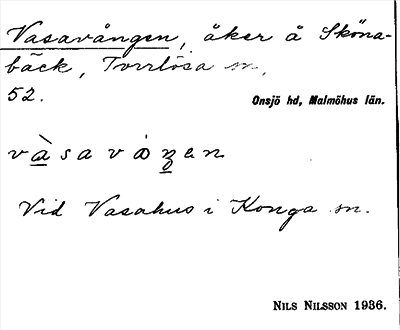 Vasavången, åker å Sköna-
bäck, Torrlösa sn,
52.
Onsjö hd, Malmöhus län.
vàsavåŋen
Vid Vasahus i Konga sn.
NILS NILSSON 1936.